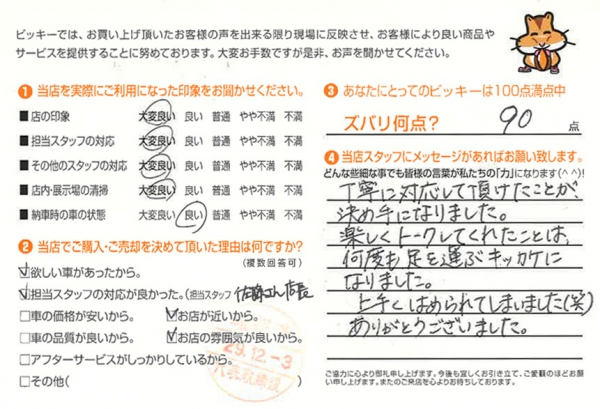 ビッキーでは、お買い上げ頂いたお客様の声を出来る限り現場に反映させ、お客様により良い商品や
サービスを提供することに努めております。大変お手数ですが是非、お声を聞かせてください。
❶ 当店を実際にご利用になった印象をお聞かせください。
■ 店の印象 大変良い 良い 普通 やや不満 不満
■ 担当スタッフの対応 大変良い 良い 普通 やや不満 不満
■ その他のスタッフの対応 大変良い 良い 普通 やや不満 不満
■ 店内・展示場の清掃 大変良い 良い 普通 やや不満 不満
■ 納車時の車の状態 大変良い 良い 普通 やや不満 不満
❷ 当店でご購入・ご売却を決めて頂いた理由は何ですか?
(複数回答可)
☑欲しい車があったから。
☑担当スタッフの対応が良かった。(担当スタッフ 佐藤さん 店長
□車の価格が安いから。 ☑お店が近いから。
□車の品質が良いから。 ☑お店の雰囲気が良いから。
□アフターサービスがしっかりしているから。
□その他(
29.12.-3
❸ あなたにとってのビッキーは100点満点中
ズバリ何点? 90 点
❹ 当店スタッフにメッセージがあればお願い致します。
どんな些細な事でも皆様の言葉が私たちの「力」になります(^^)!
丁寧に対応して頂けたことが、
決め手になりました。
楽しくトークしてくれたことは、
何度も足を運ぶキッカケに
なりました。
上手くはめられてしまいました(笑)
ありがとうございました。
ご協力に心より御礼申し上げます。今後も宜しくお引き立て、ご愛顧のほどお願
い申し上げます。またのご来店を心よりお待ちしております。